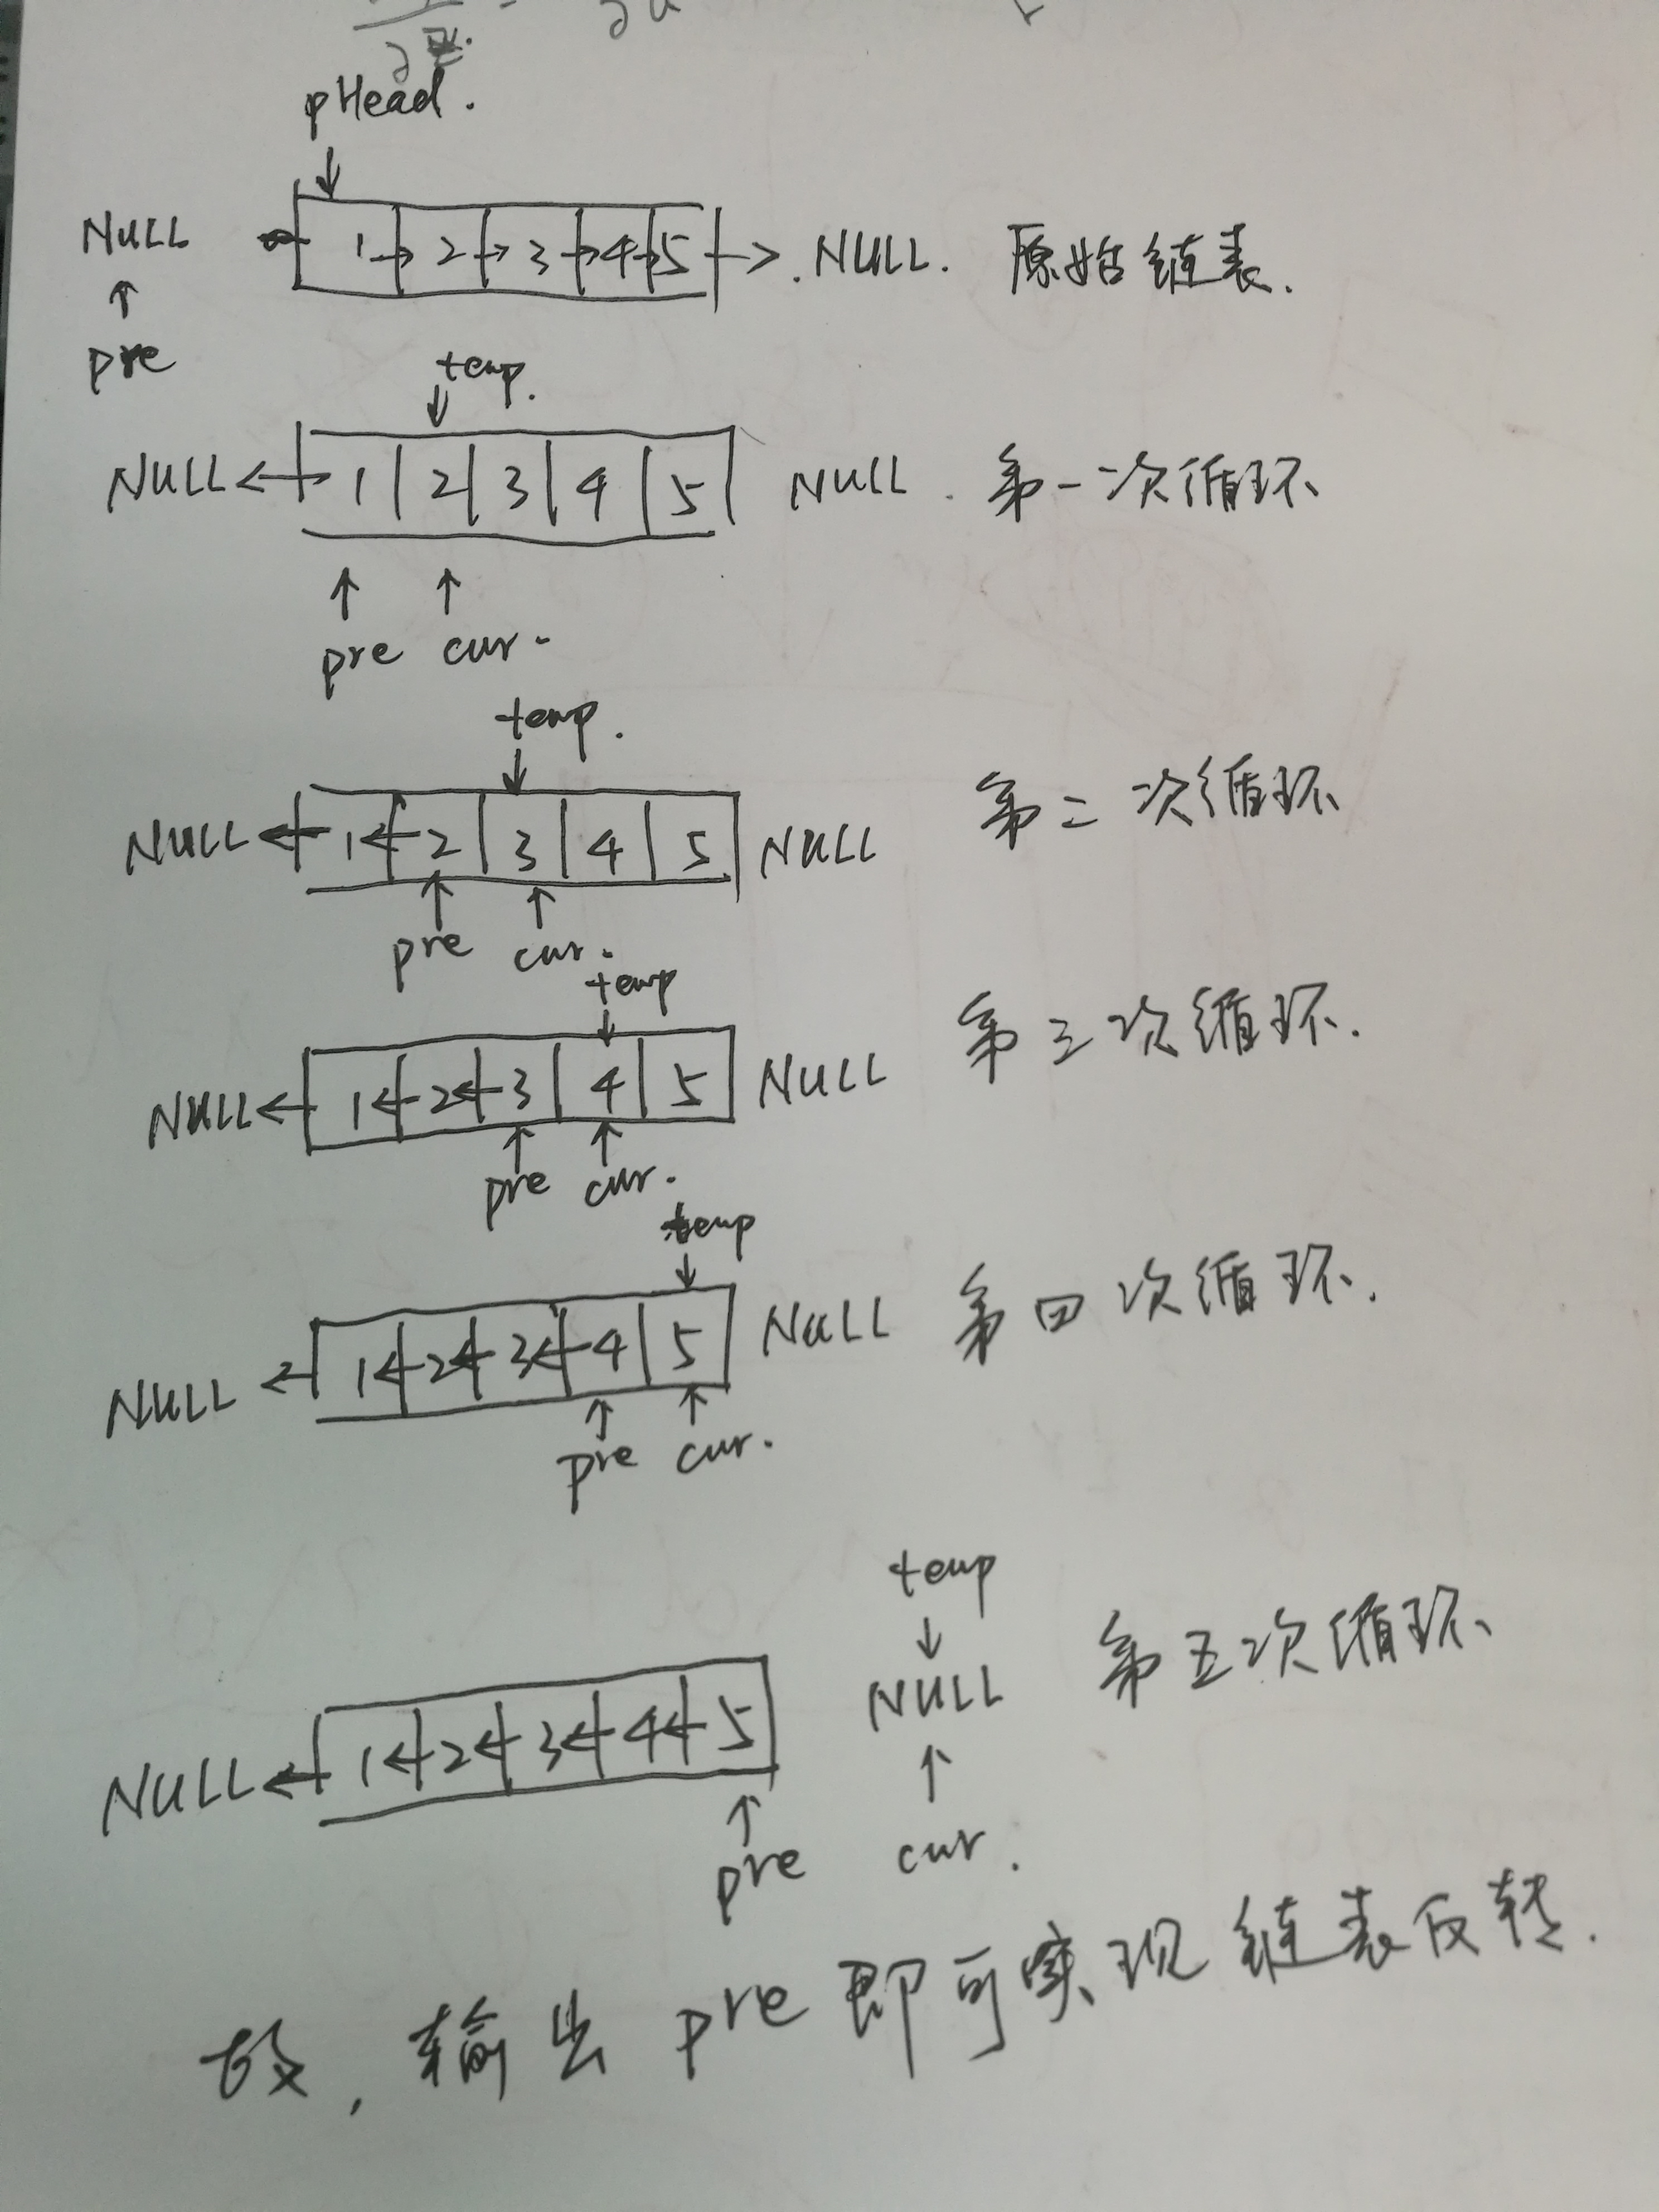 pHead.
NULL 1 → 2 → 3 → 4 → 5 → NULL. 原始链表.
↑
pre
temp.
↓
NULL ← 1 2 3 4 5 NULL. 第一次循环
↑ ↑
pre cur.
temp.
↓
NULL ← 1 ← 2 3 4 5 NULL 第二次循环
↑ ↑
pre cur.
temp
↓
NULL ← 1 ← 2 ← 3 4 5 NULL 第三次循环.
↑ ↑
pre cur.
temp
↓
NULL ← 1 ← 2 ← 3 ← 4 5 NULL 第四次循环.
↑ ↑
pre cur.
temp
↓
NULL ← 1 ← 2 ← 3 ← 4 ← 5 NULL 第五次循环
↑ ↑
pre cur.
故, 输出 pre 即可实现链表反转.